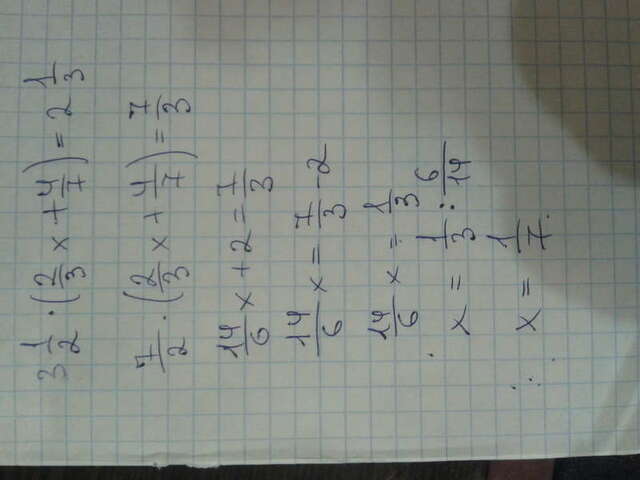 3 1/2 · (2/3 x + 4/7) = 2 1/3
7/2 · (2/3 x + 4/7) = 7/3
14/6 x + 2 = 7/3
14/6 x = 7/3 - 2
14/6 x = 1/3
x = 1/3 : 6/14
x = 1/7.